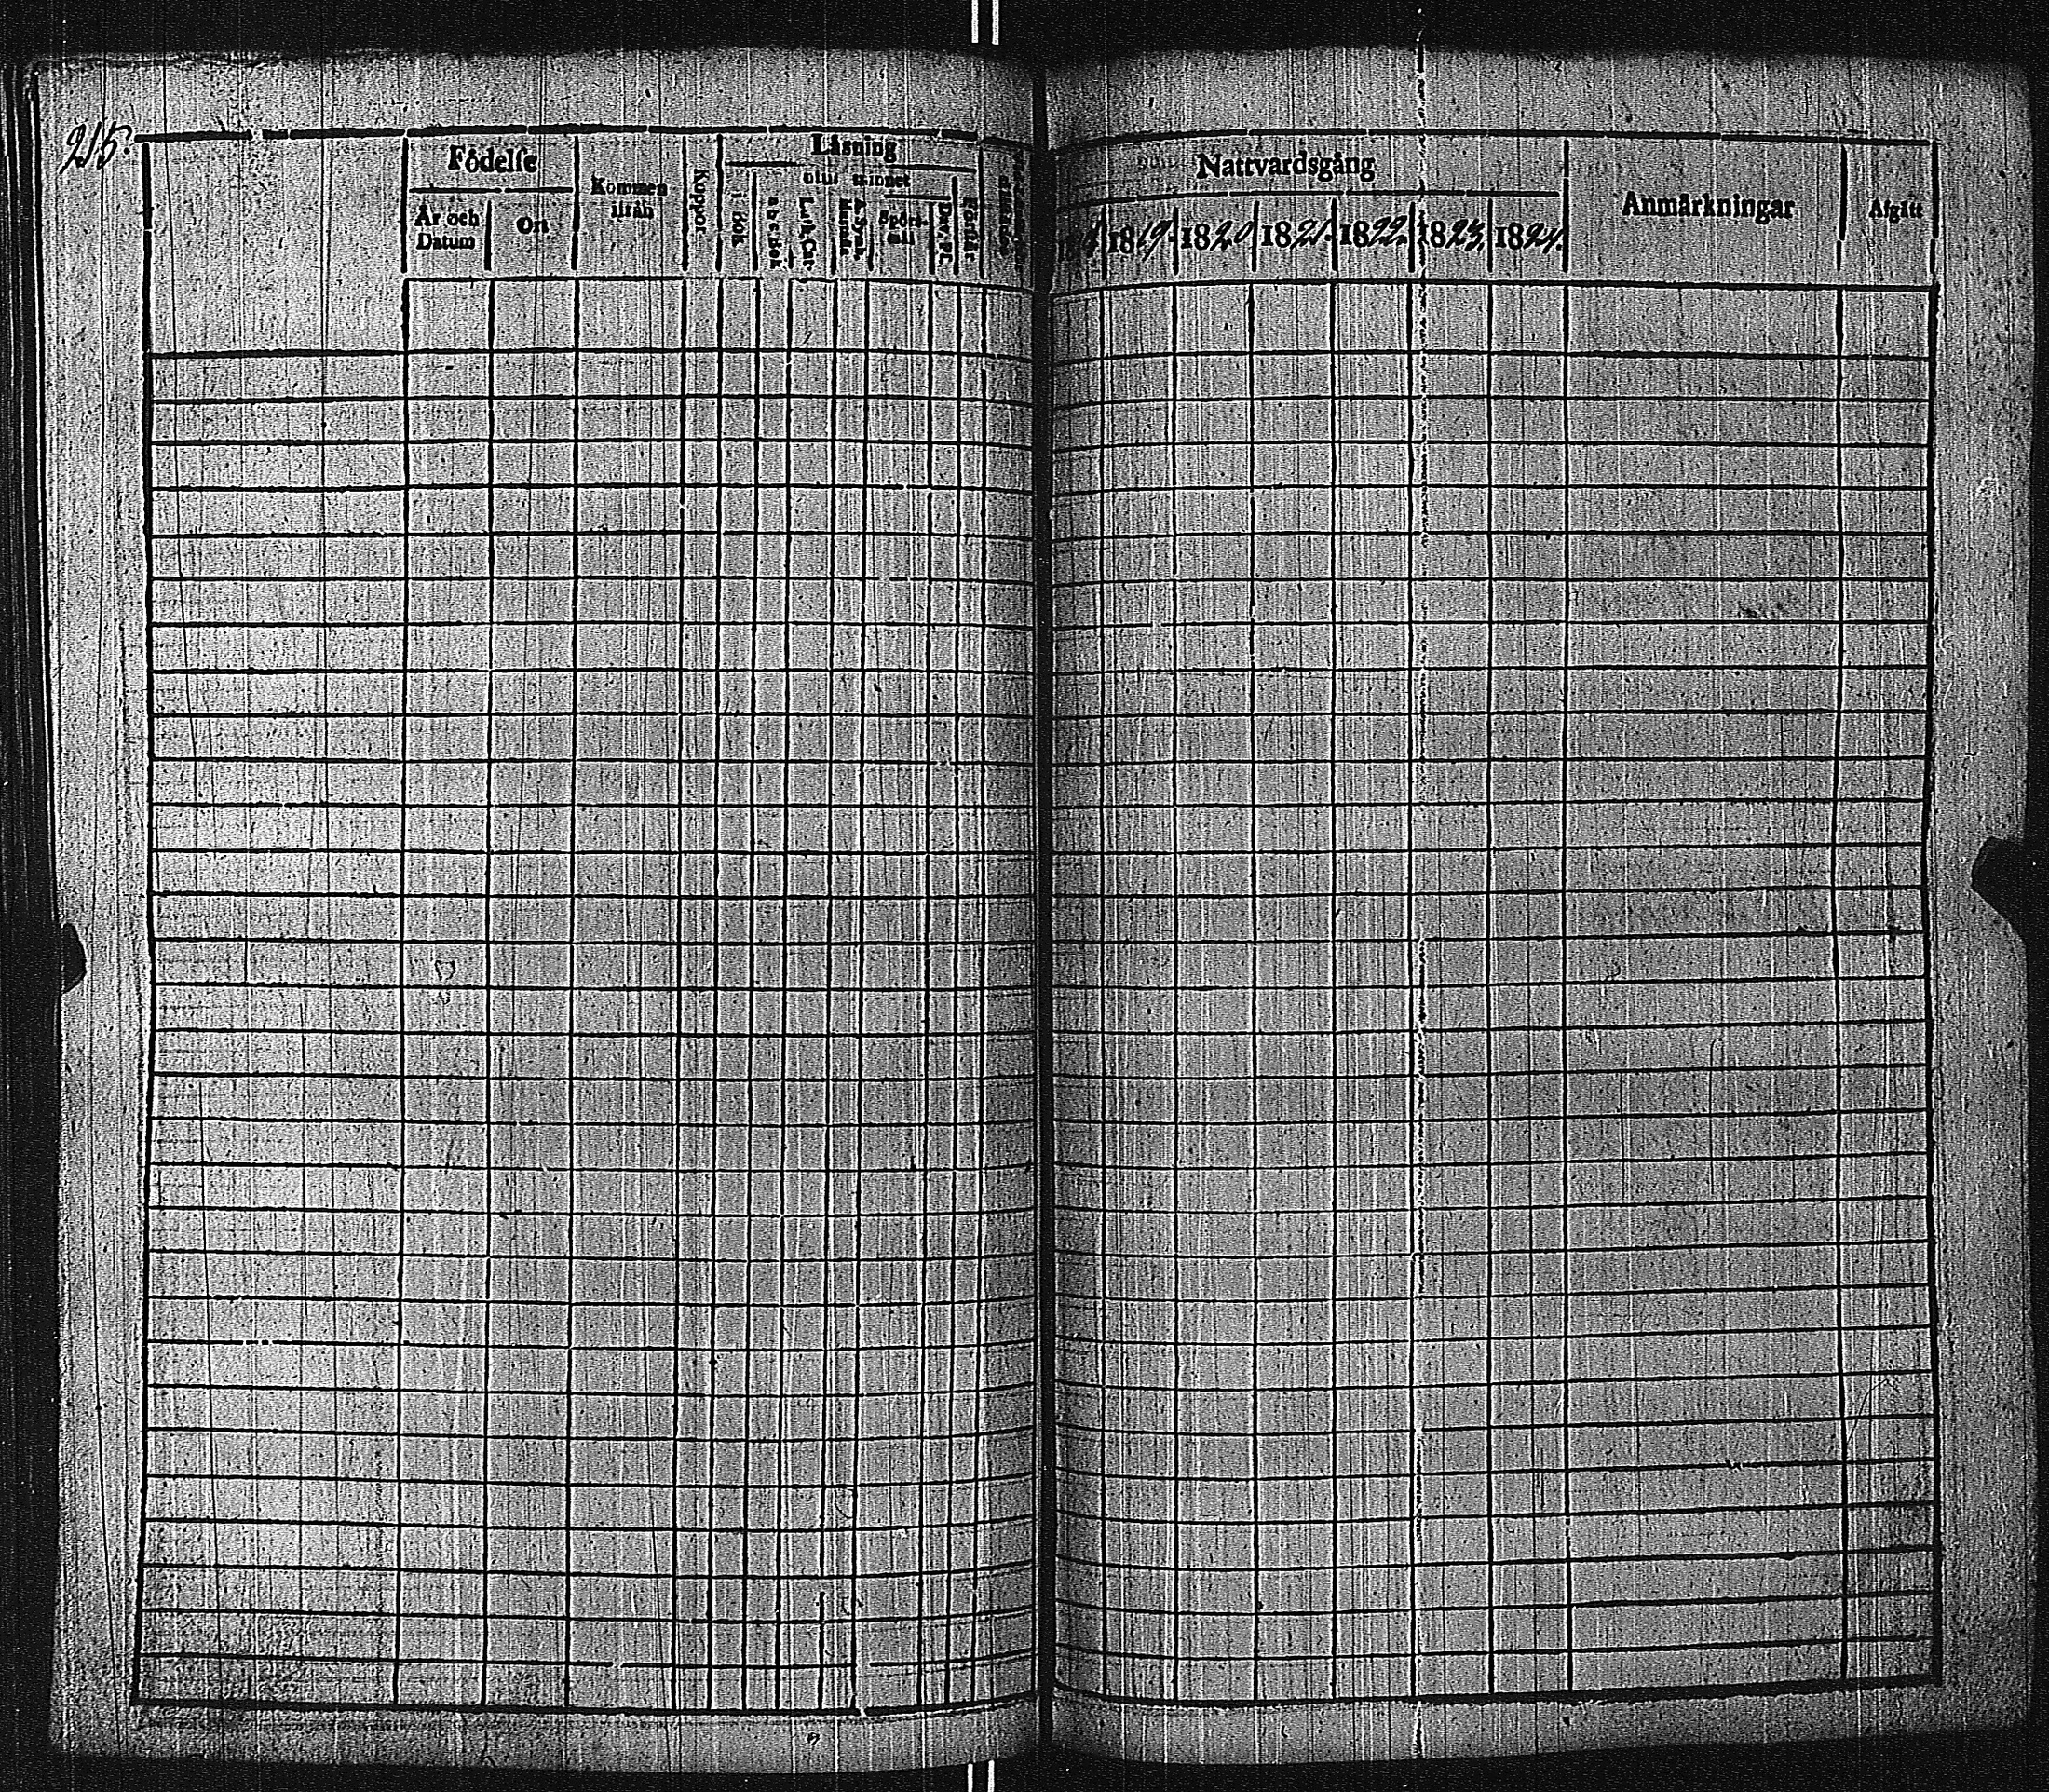 215.
Födelse
År och Datum
Ort
Kommen ifrån
Koppor
Läsning
i bok
utur minnet
a b c Bok
Luth. Cat.
A. Symb.
Spörsmål
Dav. Ps.
Förstår
Nattvardsgång
1819. 1820 1821. 1822. 1823. 1824.
Anmärkningar
Afgått